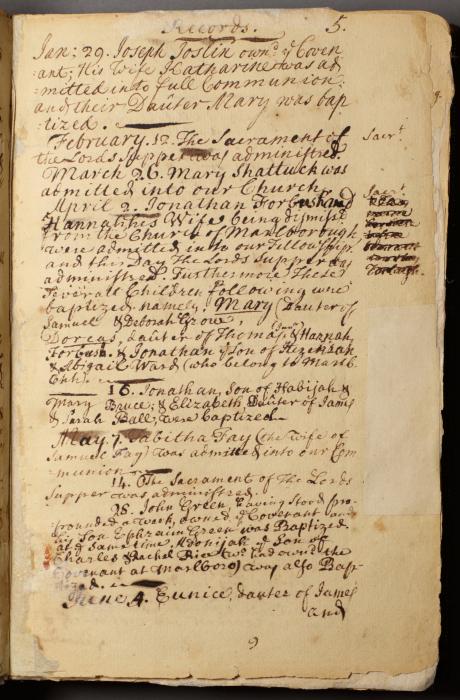 Records. 5.
Jan: 29. Joseph Joslin own'd ye Coven
ant; His Wife Katharine was ad
=mitted into full Communion:
and their Dauter Mary was bap
=tized.
February. 12. The Sacrament of
the Lords Supper was administred.
Sacrt.
March 26. Mary Shattuck was
admitted into our Church.
April 2. Jonathan Forbush and
Sacrt.
Hannah his Wife being dismist
from the Church of Marlborough
were admitted into our Fellowship,
and this Day the Lords Supper was
administred. Furthermore These
Several Children following were
baptized, namely, Mary (Dauter of
Samuel & Deborah Grow,
Dorcas, dauter of Thomas, Junr & Hannah
Forbush. & Jonathan ye Son of Hezekiah
& Abigail Ward (who belong to Marlb.
Chh).
16. Jonathan, Son of Habijah &
Mary Bruce; & Elizabeth, Dauter of James
& Sarah Ball, were baptized
May. 7. Tabitha Fay (the Wife of
Samuel Fay) was admitted into our Com
=munion
14. The Sacrament of The Lords
Supper was administred.
28. John Green, having stood pro-
pounded a week, owned ye Covenant and
his Son Ephraim Green was Baptized.
at ye same time, Adonijah ye Son of
Charles & Rachel Rice two had own'd the
Covenant at Marlboro) was also Bap-
tized.
June. 4. Eunice, dauter of James
and
9